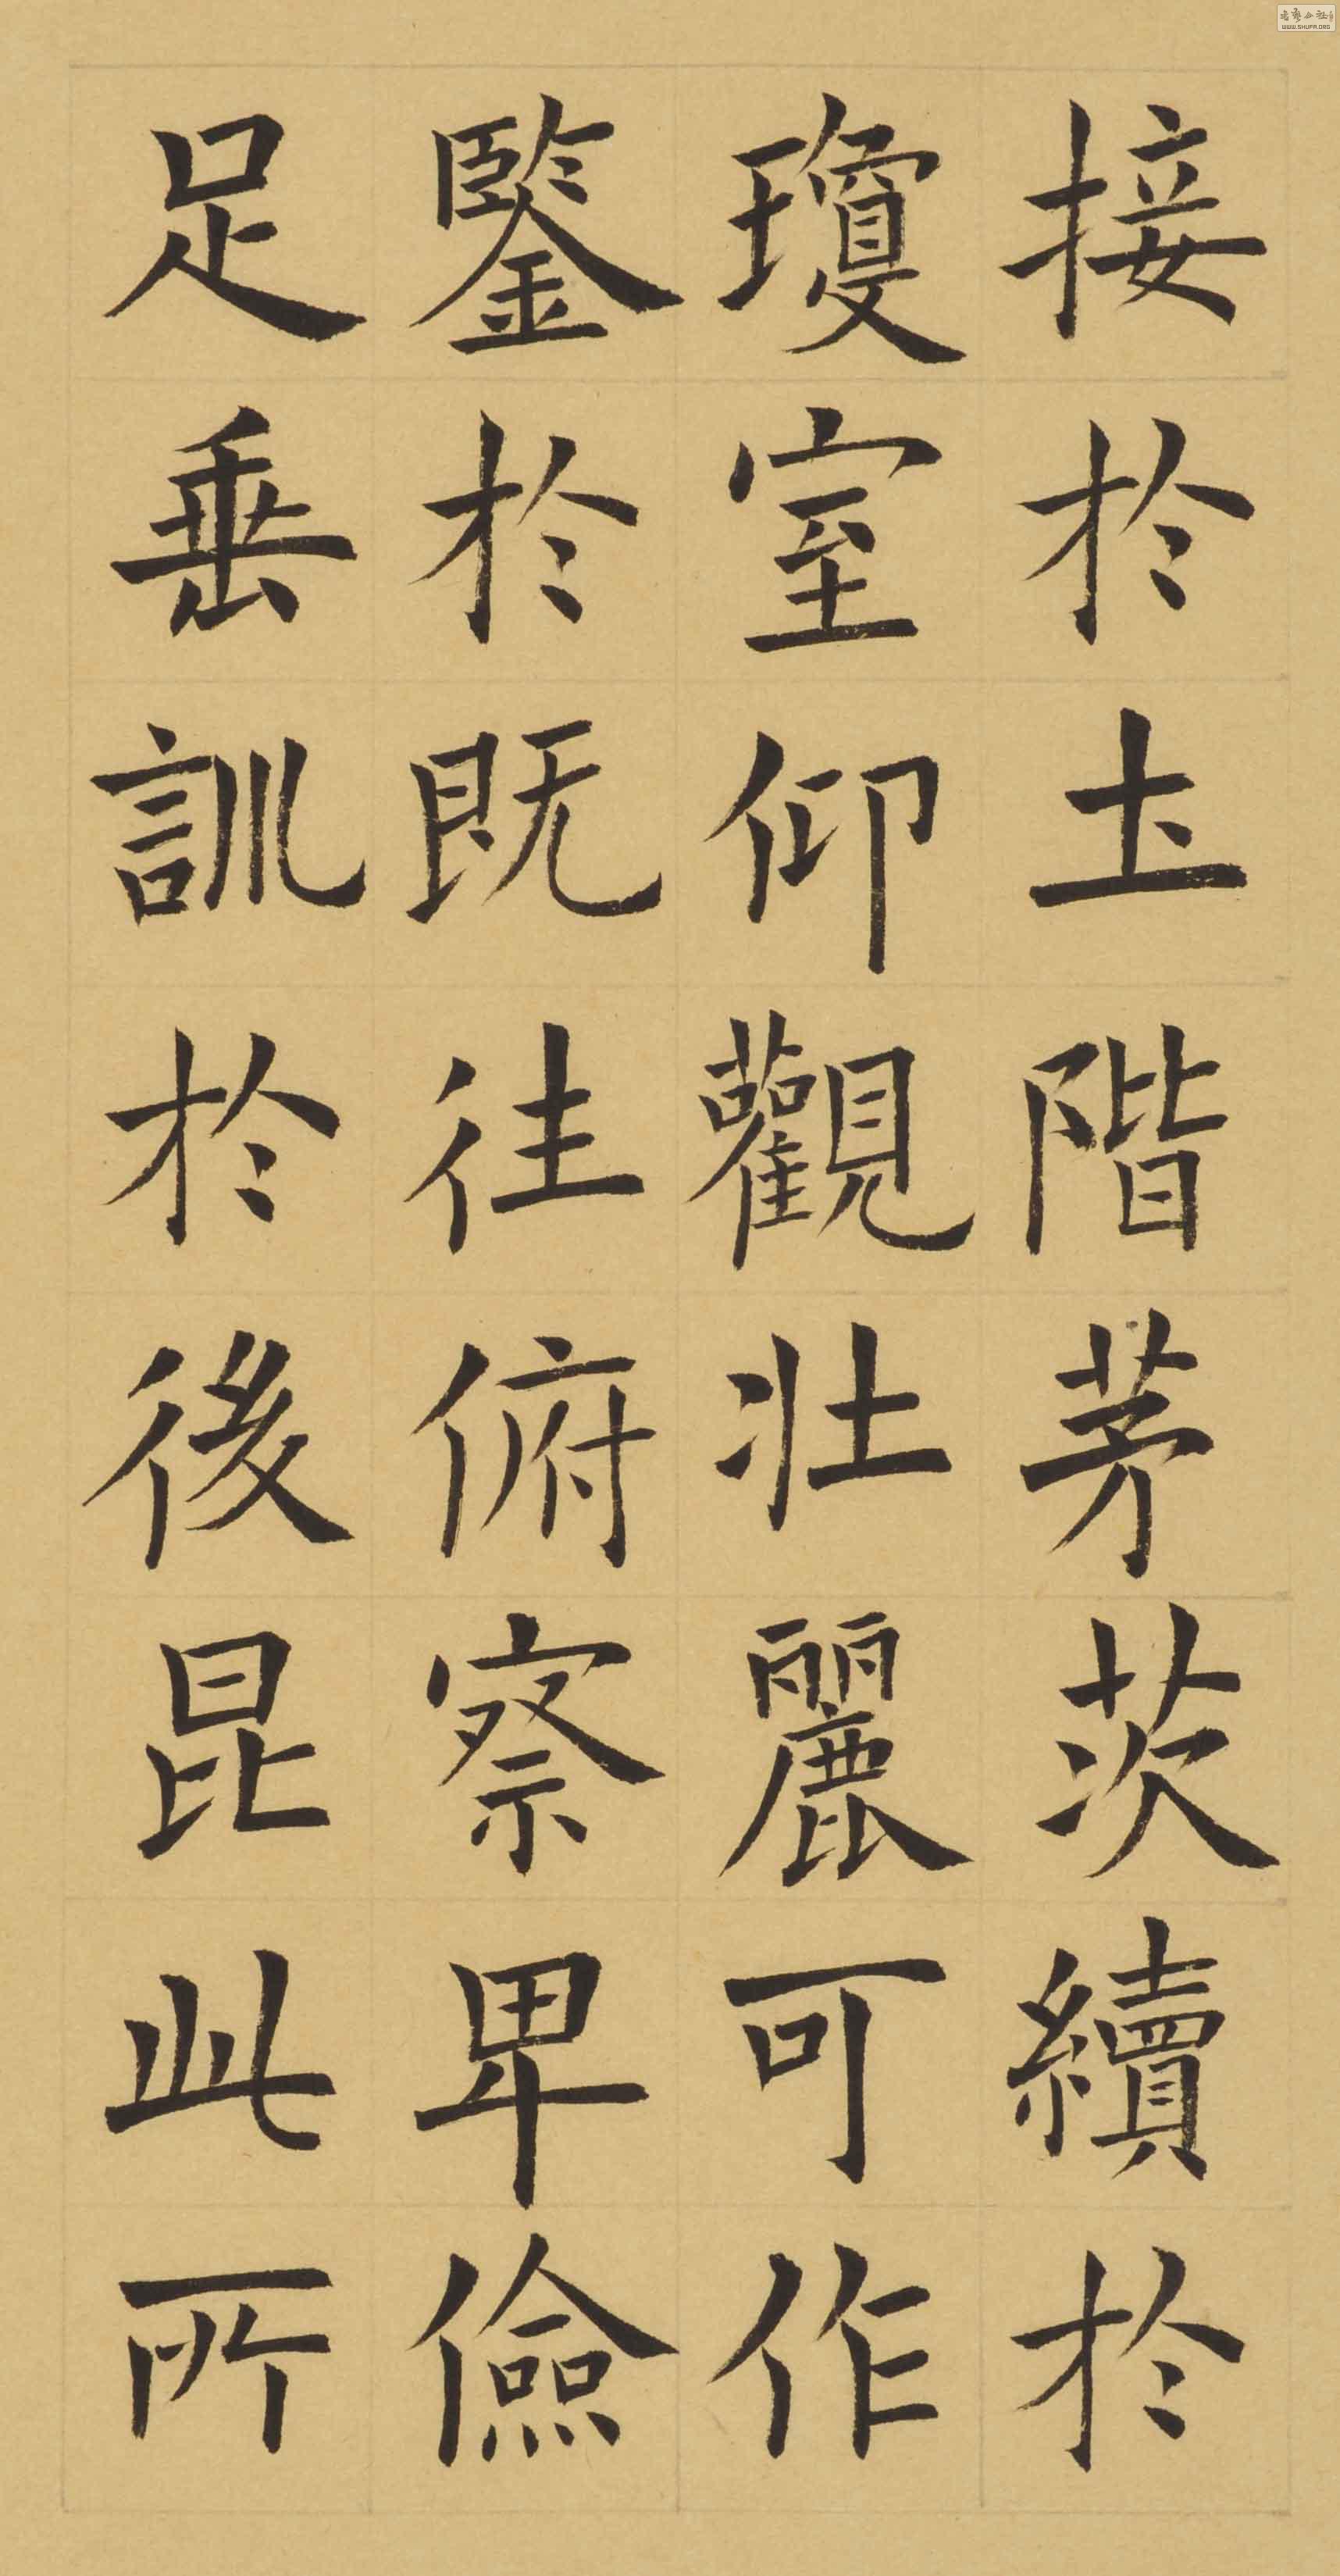 接於土階茅茨續於
瓊室仰觀壯麗可作
鑒於既往俯察卑儉
足垂訓於後昆此所
WWW.SHUFA.ORG